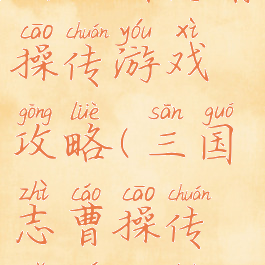 cāo chuán yóu xì
操传游戏
gōng lüè sān guó
攻略(三国
zhì cáo cāo chuán
志曹操传